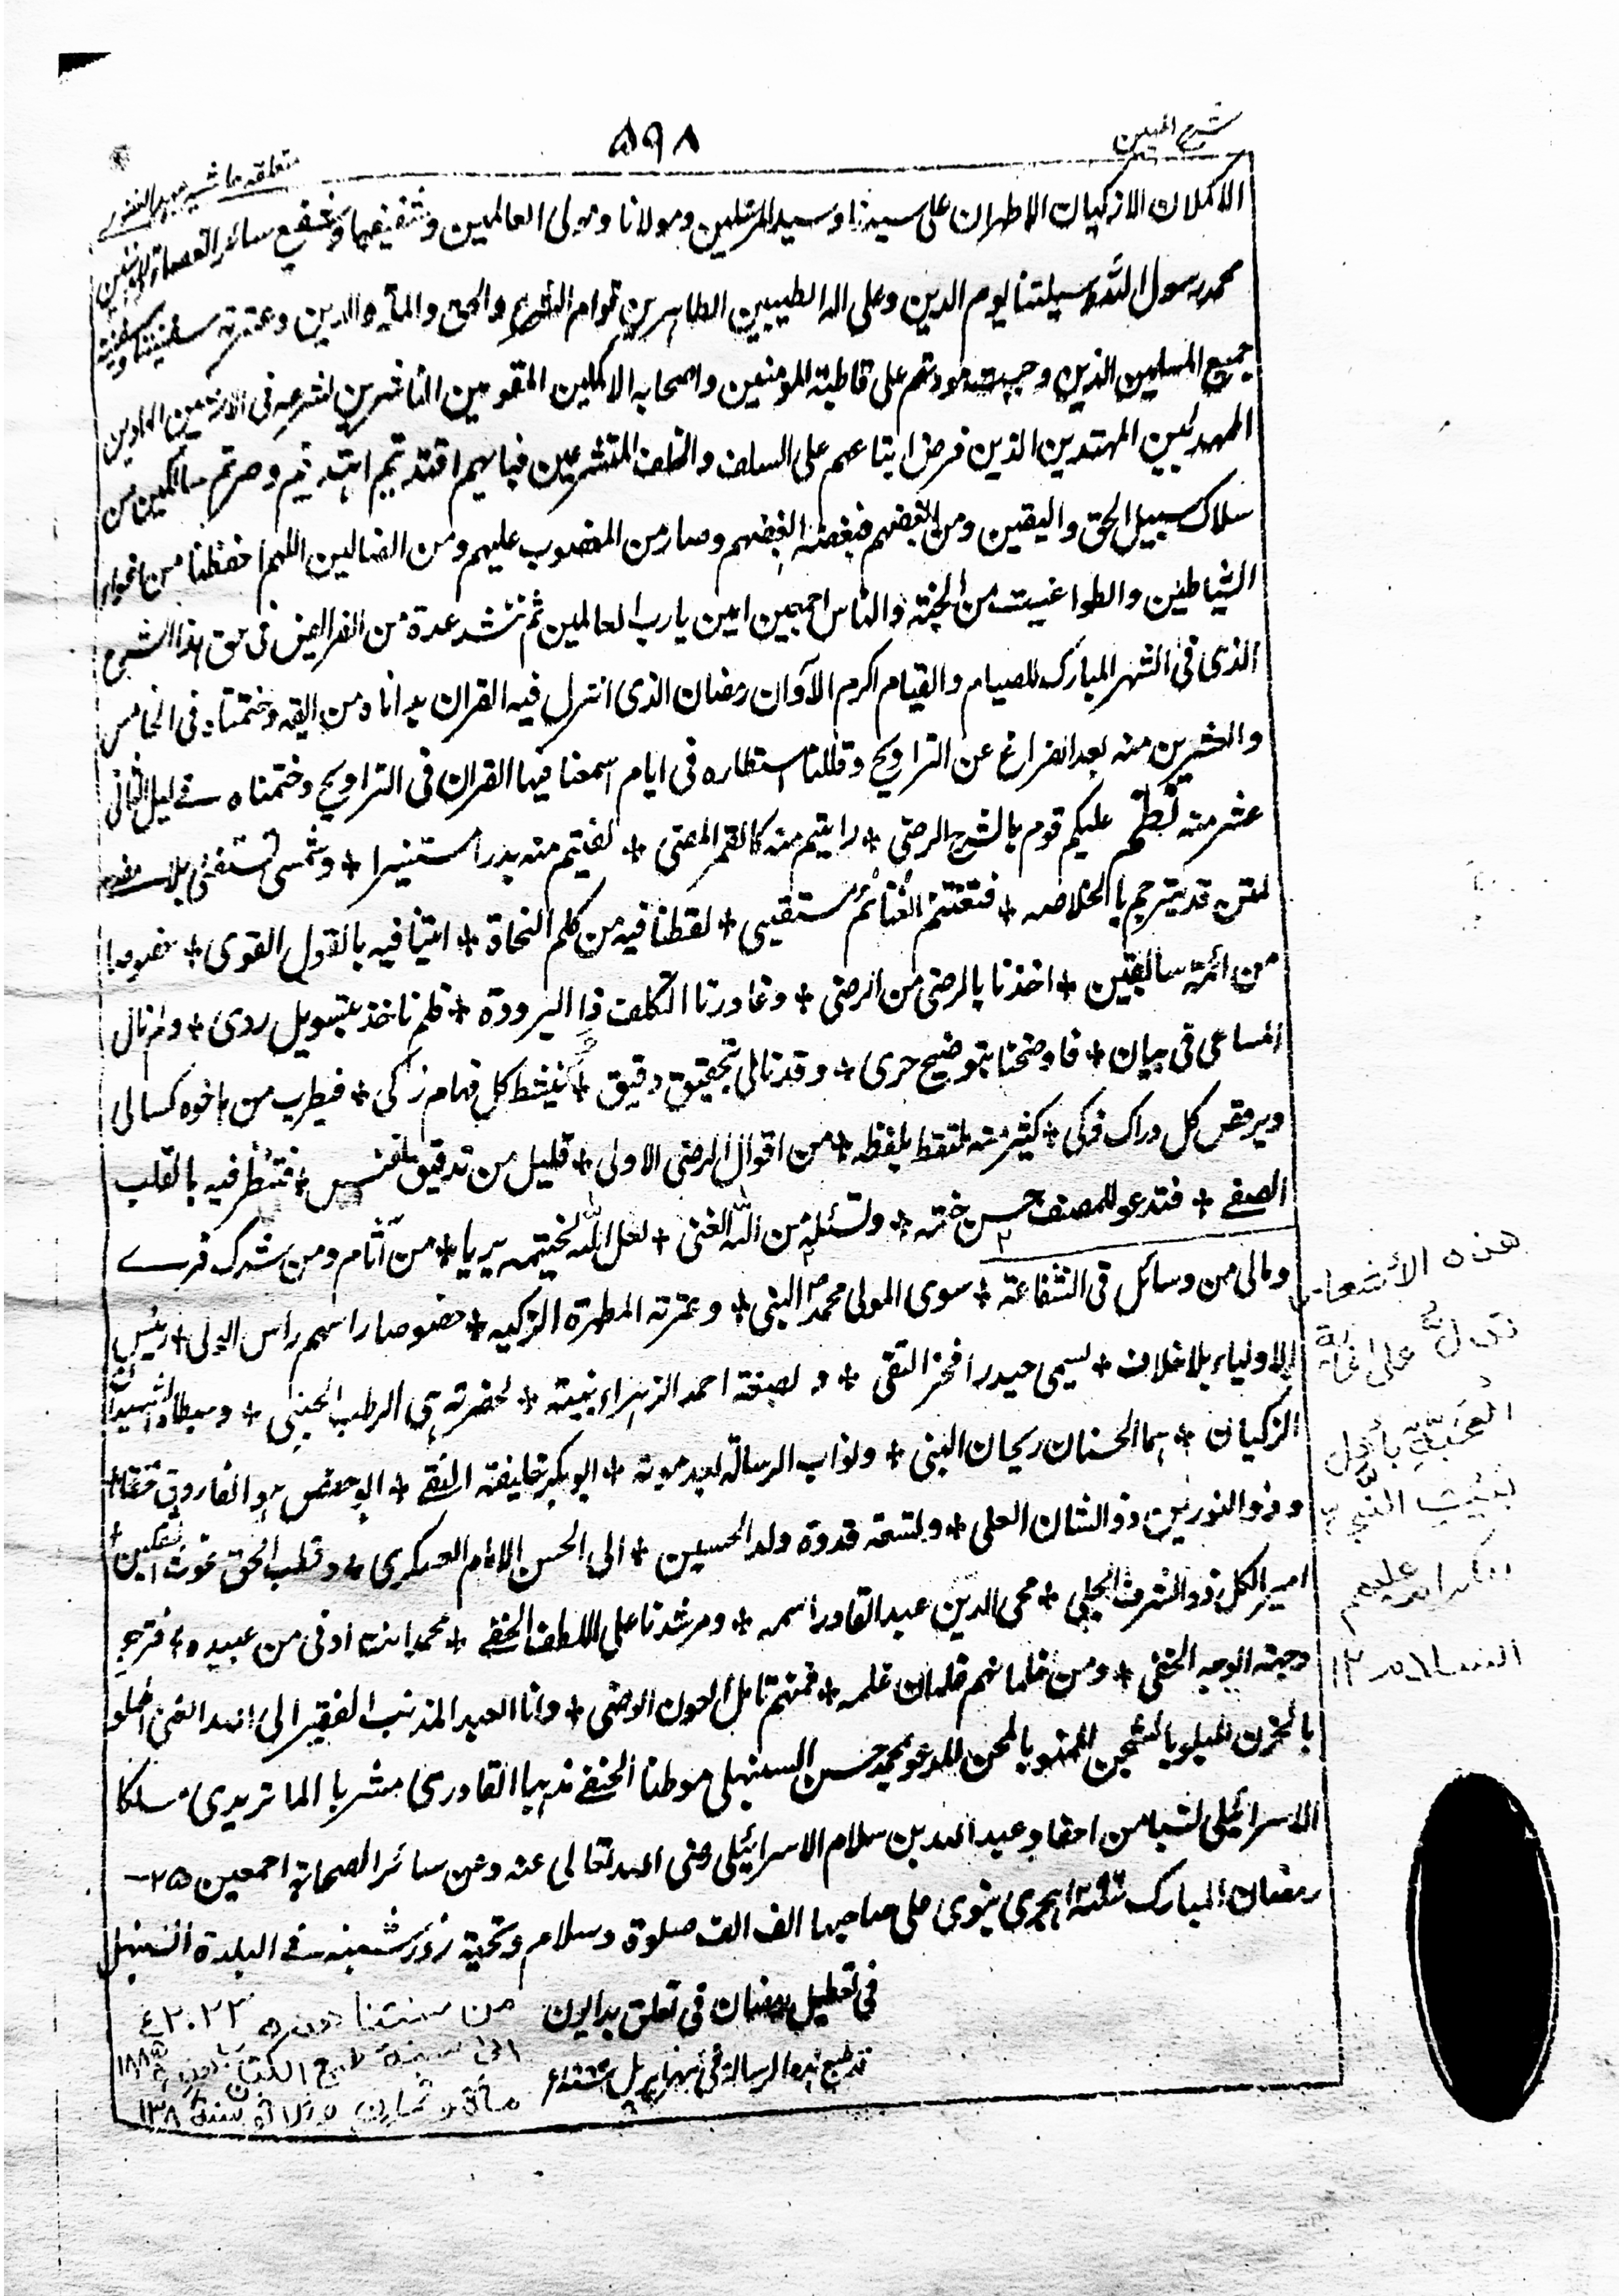 ۵۹۸
الاكملان الازكيان الاطهران على سيدنا وسيد المرسلين ومولانا ومولى العالمين وشفيعنا وشفيع سائر العصاة
محمد رسول الله وسيلتنا يوم الدين وعلى اله الطيبين الطاهرين قوام الشرع والحق والملة والدين وعترته سفينتنا وسفينة
جميع المسلمين الذين وجبت مودتهم على قاطبة المؤمنين واصحابه الاكملين المقومين الناشرين لشرعه فى الارضين الهادين
المهديين المهتدين الذين فرض اتباعهم على السلف والخلف المتشرعين فبايهم اقتديتم اهتديتم وصرتم سالكين من
سلاك سبيل الحق واليقين ومن ابغضهم فببغضه ابغضهم وصار من المغضوب عليهم ومن الضالين اللهم احفظنا من اغواء
الشياطين والطواغيت من الجنة والناس اجمعين امين يا رب العالمين ثم ننشد عدة من القرائض فى حق هذا الشرح
الذى فى الشهر المبارك للصيام والقيام اكرم الآوان رمضان الذى انزل فيه القران بدأناه من وختمناه فى الخامس
والعشرين منه بعد الفراغ عن التراويح وقللنا استطاره فى ايام اسمعنا فيها القران فى التراويح وختمناه فے ليل الثانى
عشر منه نظم عليكم قوم بالشرح الرضى * رايتم منه كالقمر المضى * لقيتم منه بدرا مستنيرا * وشمسى تستضئ بلا
لمتن قد يترجم بالخلاصه * فتغتنم الغنائم مستقيى * لقطنا فيه من كلم النحاة * اتينا فيه بالقول القوى * خصوصا
من ائمة سابقين * اخذنا بالرضى من الرضى * وغادرنا التكلف ذا البرودة * فلم ناخذ بتسويل ردى * ولم نال
المساعى فى بيان * فاوضحنا بتوضيح حرى * وقدنا الى تحقيق دقيق * فينشط كل فهام زكى * فيطرب من اخوه كسالى
ويرقص كل دراك فركى * كثير منه ملتقط بلفظه * من اقوال الرضى الاولى * قليل من تدقيق بنفسى * فتنظر فيه بالقلب
الصفے * فتدعو للمصنف حسن ختمه * ولتسئله من الله الغنى * لعل الله يختمه بريا * من آثام ومن شرك فرے
ومالى من وسائل فى الشفاعة * سوى المولى محمد النبى * وعترته المطهرة الزكيه * خصوصا راسهم راس الولى * رئيس
الاولياء بلا خلاف * يسمى حيدرا فخر التقى * و بضعة احمد الزهراء بنته * لحضرته هى الرطب الجنى * وسبطاه
الزكيان * هما الحسنان ريحان النبى * ونواب الرسالة بعد موته * ابو بكر خليفته التقے * ابو حفص هو الفاروق
وذو النورين ذو الشان العلى * وتسعة قدوة ولد الحسين * الى الحسن الامام العسكرى * وقطب الحق غوث الثقلين *
امير الكل ذو الشرف الجلى * محى الدين عبد القادر اسمه * ومرشدنا على اللطف الخفے * محمد انت ادنى من عبيده *
وجهه الوجه الخفى * ومن غلمانهم غلمان غلمه * فمنهم تامل العون الوفى * وانا العبد المذنب الفقير الى الله الغنى
بالحزن المبلو بالشجن الممنو بالمحن المدعو محمد حسن السنبهلى موطنا الحنفے مذهبا القادرى مشربا الماتريدى مسلكا
الاسرائيلى نسبا من احفاد عبد الله بن سلام الاسرائيلى رضى الله تعالى عنه وعن سائر الصحابة اجمعين ۲۵
رمضان المبارك هجرى نبوى على صاحبها الف الف صلوة وسلام وتحية روز شنبه فے البلدة السنبهل
فى تعطيل رمضان فى تعلق بدايون
قد طبع هذه الرسالة فى شهر اپريل
هذه الأشعار
تدل على غاية
المحبة بأهل
بيت النبي
عليهم
السلام ١٢
من سنتنا هذه ٢٠٢٣
الى سنة طبع الكتاب ١٨٨٥